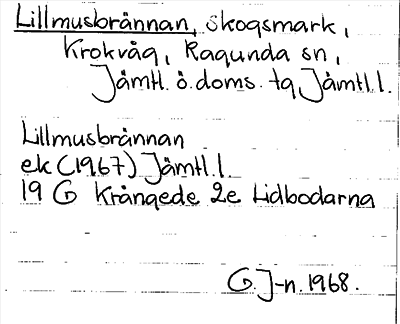 Lillmusbrännan, skogsmark,
Krokvåg, Ragunda sn,
Jämtl. ö. doms. tg Jämtl. l.
Lillmusbrännan
ek (1967) Jämtl. l.
19 G Krångede 2e Lidbodarna
G. J-n. 1968.